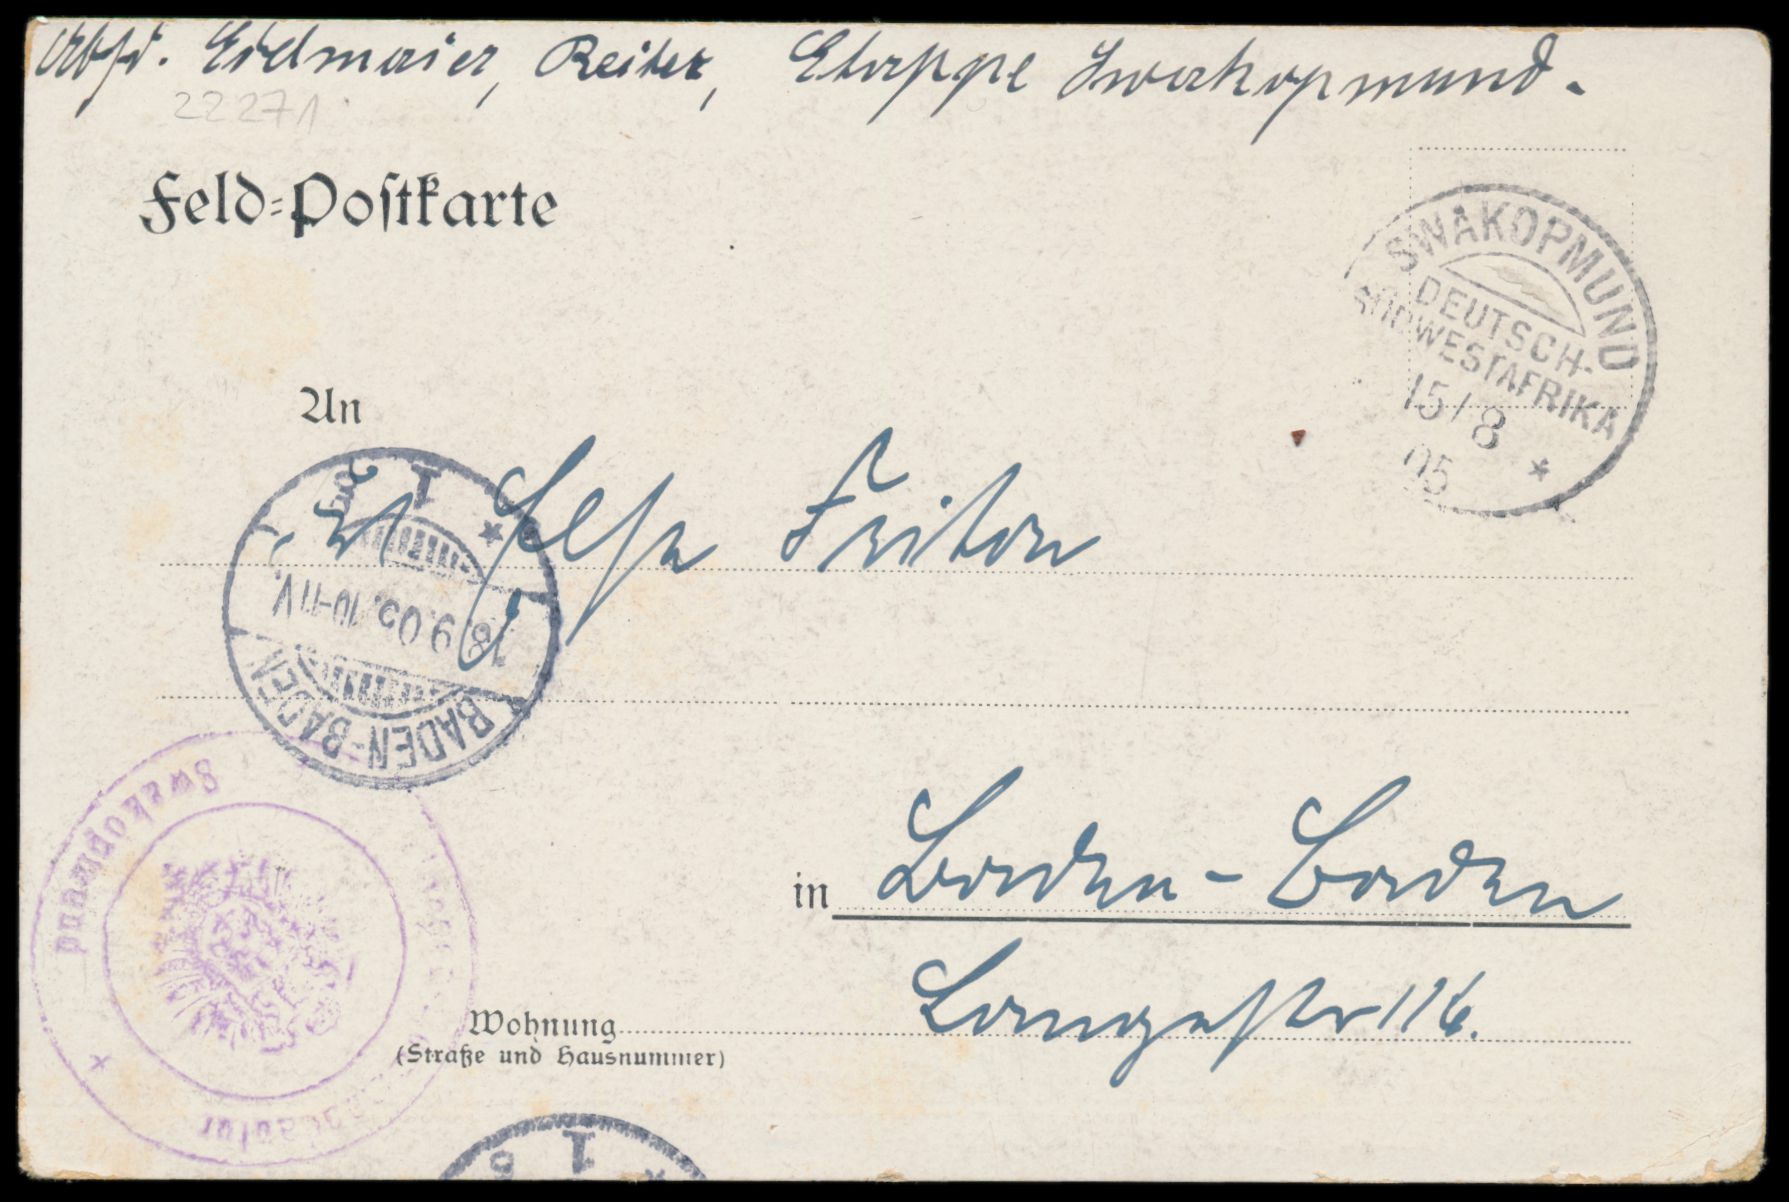 Absd. Eidlmaier, Reiter, Etappe Swakopmund.
22271
Feld-Postkarte
SWAKOPMUND
DEUTSCH-
SÜDWESTAFRIKA
15/8
05
An
Friton
1
18.9.05.10-11V.
BADEN-BADEN
Swakopmund
in Baden-Baden
Langestr 116.
Wohnung
(Straße und Hausnummer)
1